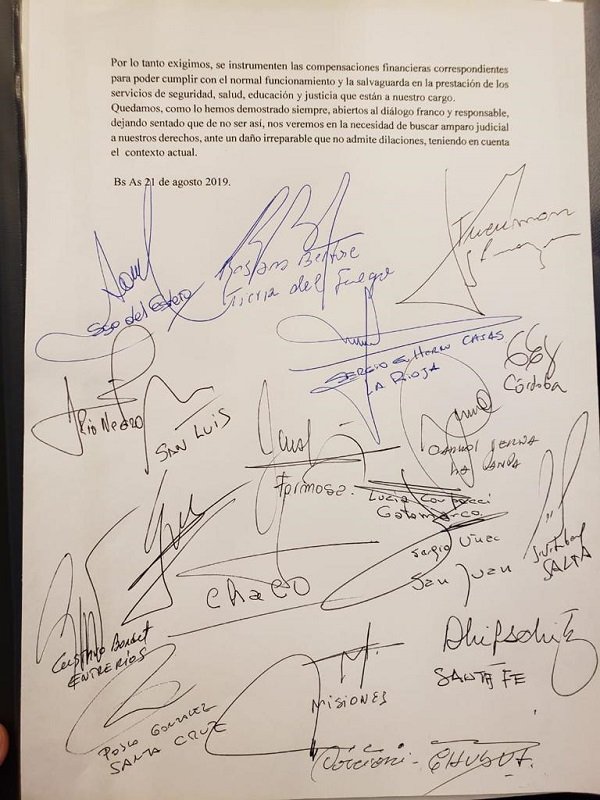 Por lo tanto exigimos, se instrumenten las compensaciones financieras correspondientes
para poder cumplir con el normal funcionamiento y la salvaguarda en la prestación de los
servicios de seguridad, salud, educación y justicia que están a nuestro cargo.
Quedamos, como lo hemos demostrado siempre, abiertos al diálogo franco y responsable,
dejando sentado que de no ser así, nos veremos en la necesidad de buscar amparo judicial
a nuestros derechos, ante un daño irreparable que no admite dilaciones, teniendo en cuenta
el contexto actual.
Bs As 21 de agosto 2019.
Tucuman
Sgo del Estero
Tierra del Fuego
SERGIO G. CASAS
LA RIOJA
Córdoba
Rio Negro
SAN LUIS
LA PAMPA
Formosa.
Lucía
Catamarca
Sergio Uñac
San Juan
SALTA
Chaco
Gustavo Bordet
ENTRE RIOS
SANTA FE
MISIONES
SANTA CRUZ
CHUBUT.